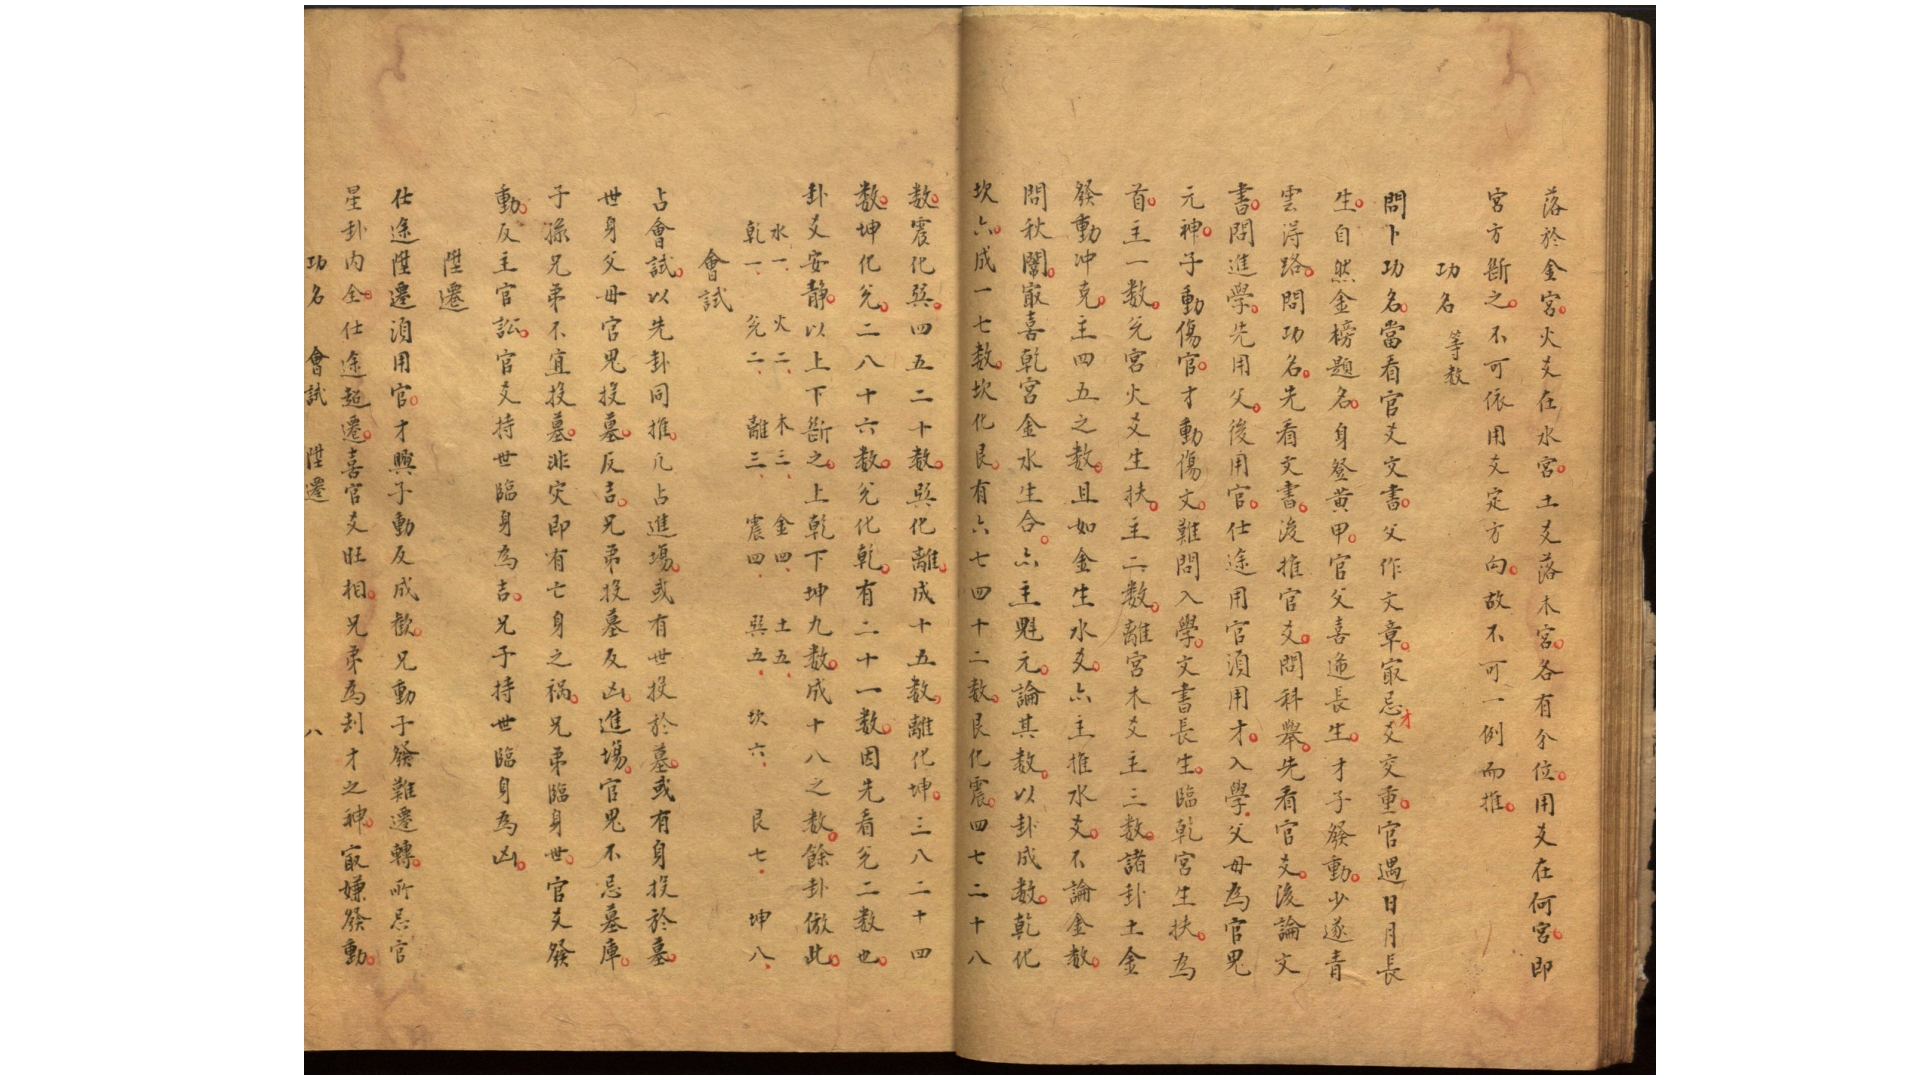 落於金宮火爻在水宮土爻落木宮各有分位用爻在何宮即
宮方斷之不可依用爻定方向故不可一例而推
功名等数
問卜功名當看官爻文書父作文章㝡忌才爻交重官遇日月長
生自然金榜題名身登黄甲官父喜逢長生才子發動少遂青
雲得路問功名先看文書後推官爻問科舉先看官爻後論文
書問進學先用父後用官仕途用官須用才入學父母為官鬼
元神子動傷官才動傷文難問入學文書長生臨乾宮生扶為
首主一数兌宮火爻生扶主二数離宮木爻主三数諸卦土金
發動冲克主四五之数且如金生水爻亦主推水爻不論金数
問秋闈㝡喜乾宮金水生合亦主魁元論其数以卦成数乾化
坎六成一七数坎化艮有六七四十二数艮化震四七二十八
数震化巽四五二十数巽化離成十五数離化坤三八二十四
数坤化兌二八十六数兌化乾有二十一数因先看兌二数也
卦爻安静以上下斷之上乾下坤九数成十八之数餘卦倣此
水一火二木三金四土五
乾一兌二離三震四巽五坎六艮七坤八
會試
占會試以先卦同推凡占進場或有世投於墓或有身投於墓
世身父母官鬼投墓反吉兄弟投墓反凶進場官鬼不忌墓庫
子孫兄弟不宜投墓非灾即有亡身之禍兄弟臨身世官爻發
動反主官訟官爻持世臨身為吉兄子持世臨身為凶
陞遷
仕途陞遷須用官才興子動反成歡兄動子發難遷轉所忌官
星卦内全仕途超遷喜官爻旺相兄弟為刦才之神㝡嫌發動
功名 會試 陞遷 八